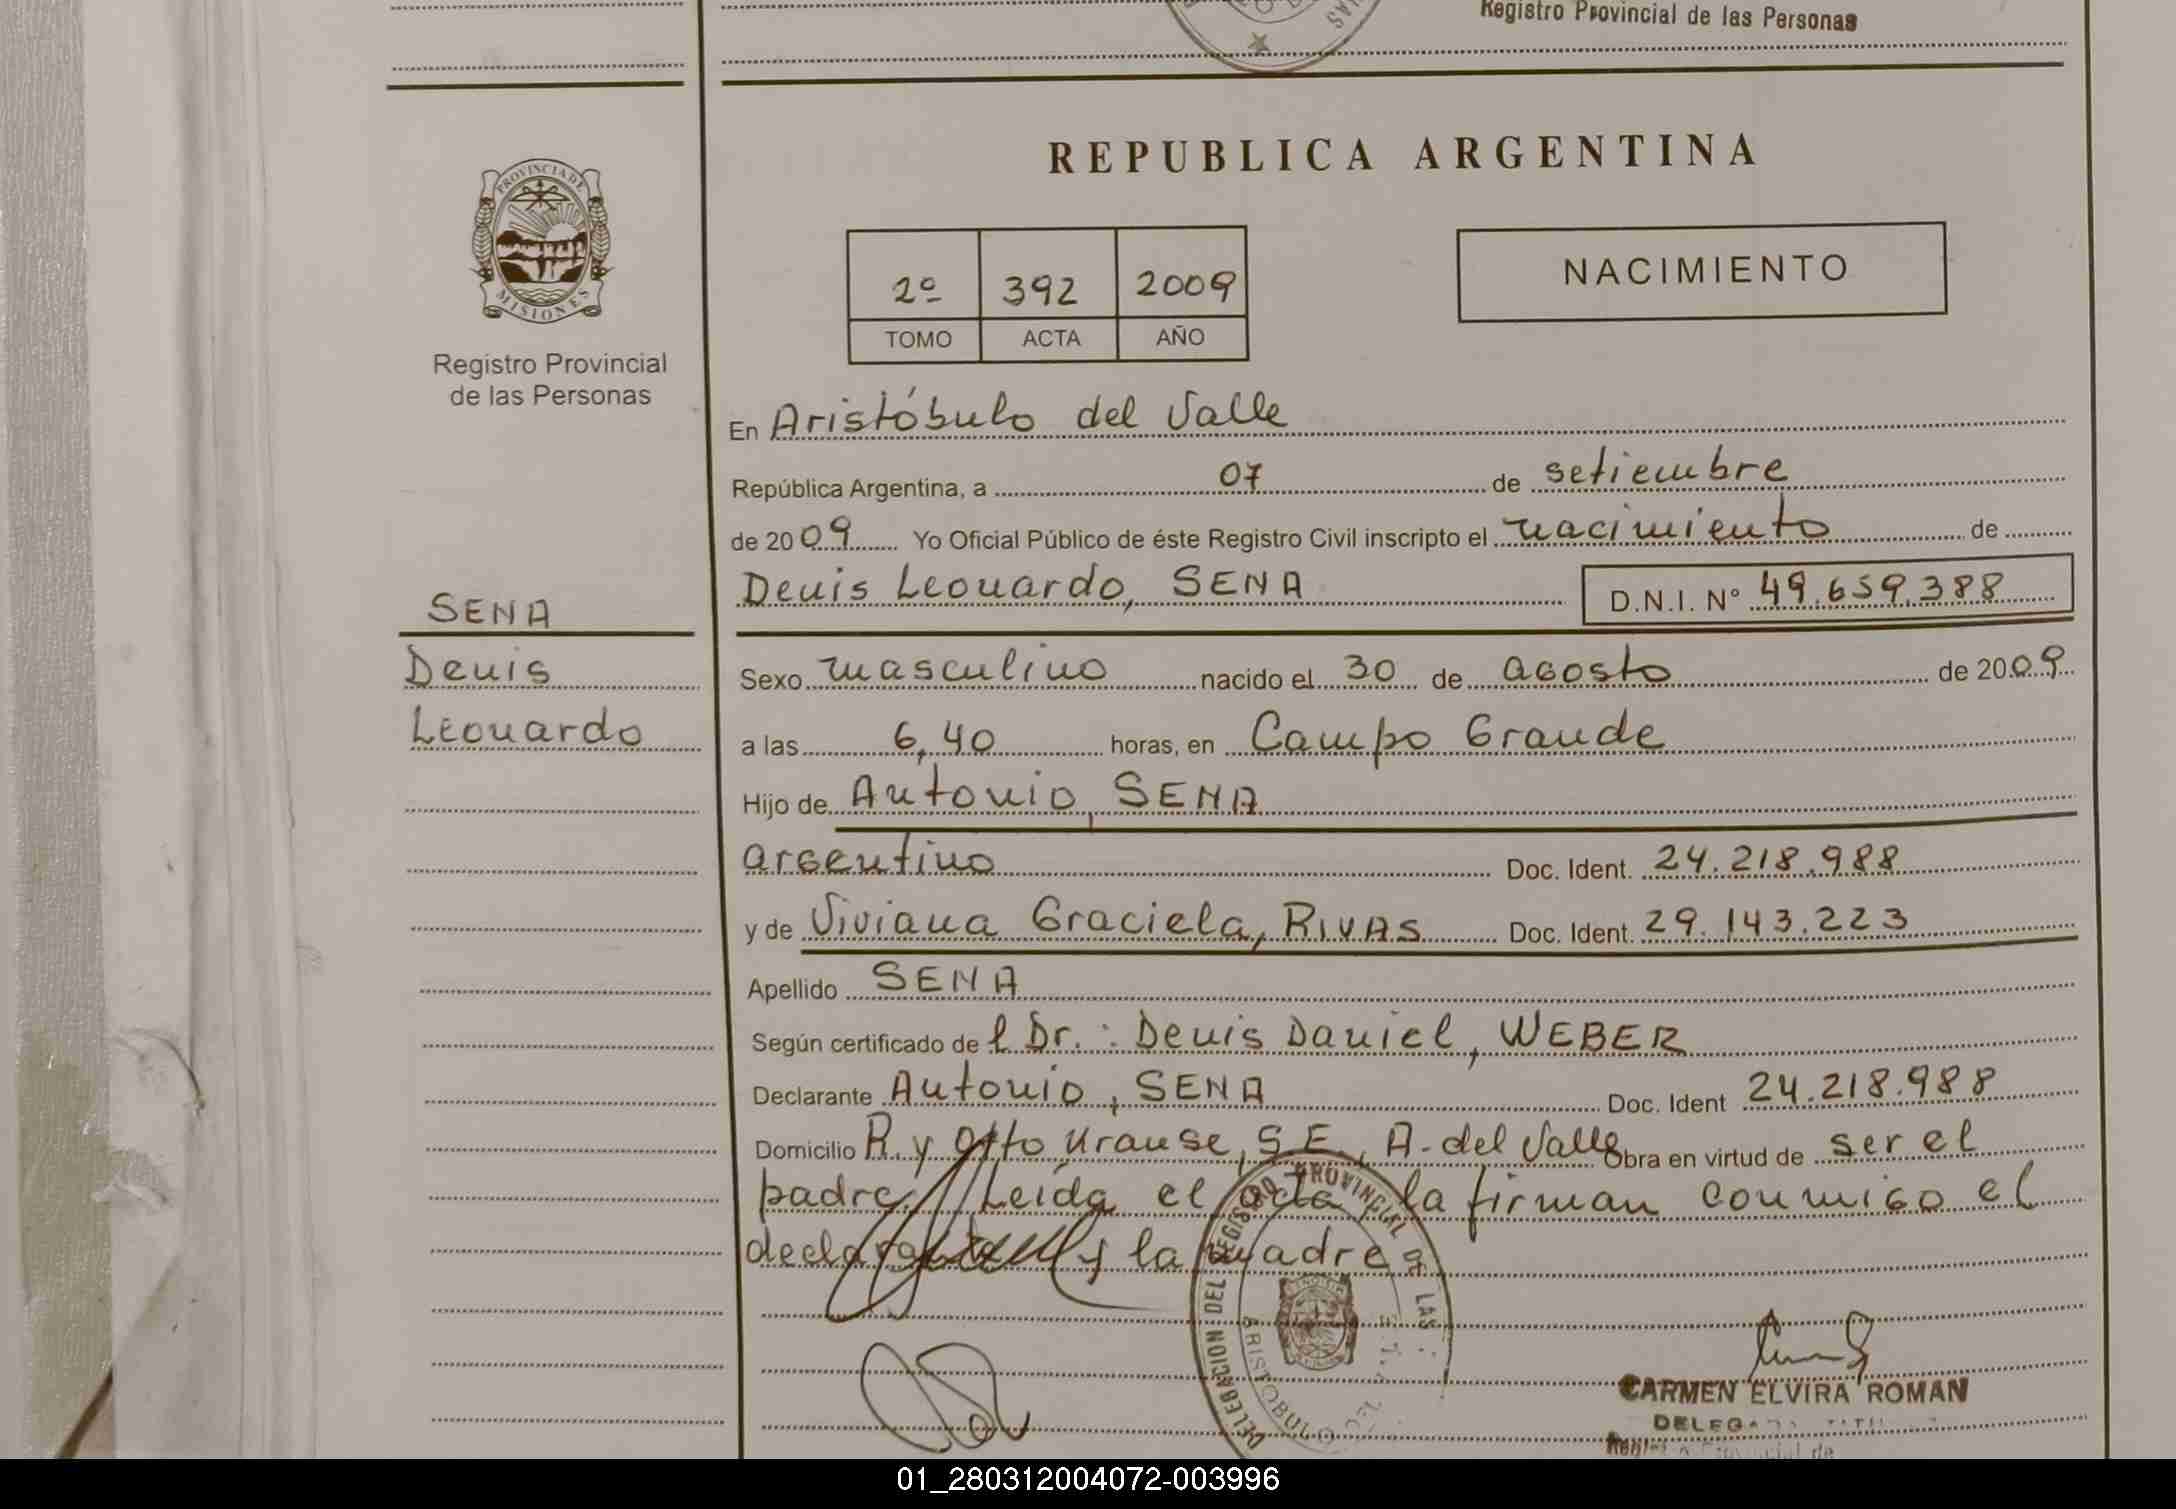 Registro Provincial de las Personas
REPUBLICA ARGENTINA
PROVINCIA DE
MISIONES
Registro Provincial
de las Personas
2º 392 2009
TOMO ACTA AÑO
NACIMIENTO
En Aristóbulo del Valle
República Argentina, a 07 de setiembre
de 2009 Yo Oficial Público de éste Registro Civil inscripto el nacimiento de
Denis Leonardo, SENA D.N.I. N° 49.659.388
SENA
Denis
Leonardo
Sexo masculino nacido el 30 de agosto de 2009
a las 6,40 horas, en Campo Grande
Hijo de Antonio, SENA
argentino Doc. Ident. 24.218.988
y de Viviana Graciela, RIVAS Doc. Ident. 29.143.223
Apellido SENA
Según certificado del Dr.: Denis Daniel, WEBER
Declarante Antonio, SENA Doc. Ident 24.218.988
Domicilio R. y Otto Krause, S.E., A. del Valle Obra en virtud de ser el
padre. Leída el acta, la firman conmigo el
declarante y la madre
DELEGACION DEL REGISTRO PROVINCIAL DE LAS
ARISTOBULO DEL
CARMEN ELVIRA ROMAN
01_280312004072-003996